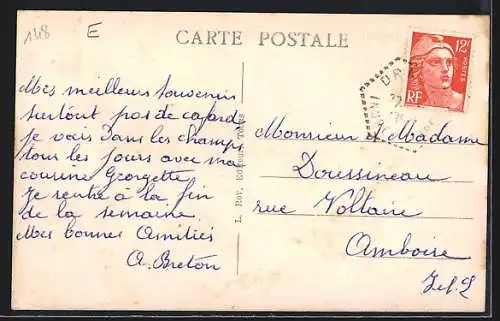 148
E
CARTE POSTALE
12F
POSTES
RF
Mes meilleurs souvenirs
surtout pas de cafard
je vais Dans les champs
tous les jours avec ma
cousine Georgette
Je rentre à la fin
de la semaine.
Mes bonnes Amitiés
A. Breton
L. Roy, Editeur, Tours
Monsieur et Madame
Doussineau
rue Voltaire
Amboise
I et L